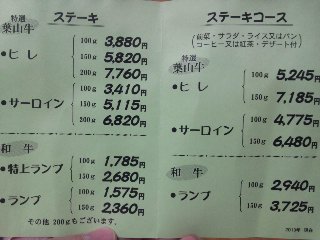 ステーキ
特選
葉山牛
●ヒレ
100g 3,880円
150g 5,820円
200g 7,760円
●サーロイン
100g 3,410円
150g 5,115円
200g 6,820円
和牛
●特上ランプ
100g 1,785円
150g 2,680円
●ランプ
100g 1,575円
150g 2,360円
その他 200gもございます。
ステーキコース
(前菜・サラダ・ライス又はパン
コーヒー又は紅茶・デザート付)
特選
葉山牛
●ヒレ
100g 5,245円
150g 7,185円
●サーロイン
100g 4,775円
150g 6,480円
和牛
●ランプ
100g 2,940円
150g 3,725円